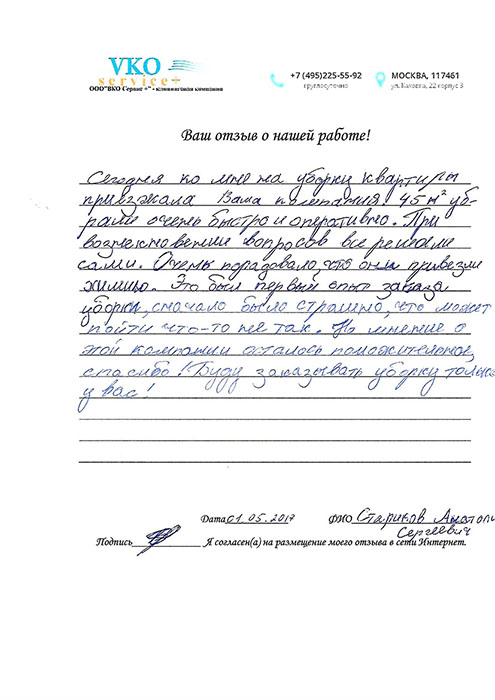 VKO
service+
ООО"ВКО Сервис +" - клининговая компания
+7 (495)225-55-92
круглосуточно
МОСКВА, 117461
ул. Каховка, 22 корпус 3
Ваш отзыв о нашей работе!
Сегодня ко мне на уборку квартиры
приезжала Ваша компания. 45 м² уб-
рали очень быстро и оперативно. При
возникновении вопросов все решали
сами. Очень порадовало, что они привезли
химию. Это был первый опыт заказа
уборки, сначало было страшно, что может
пойти что-то не так. Но мнение о
этой компании осталось положительное,
спасибо! Буду заказывать уборку только
у вас!
Дата 01.05.2017 ФИО Стариков Анатолий
Сергеевич
Подпись Я согласен(а) на размещение моего отзыва в сети Интернет.